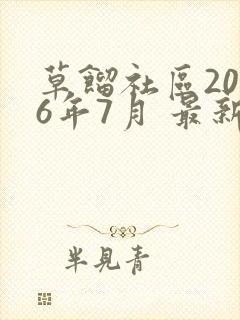 草餾社區20
6年7月 最新
半見青